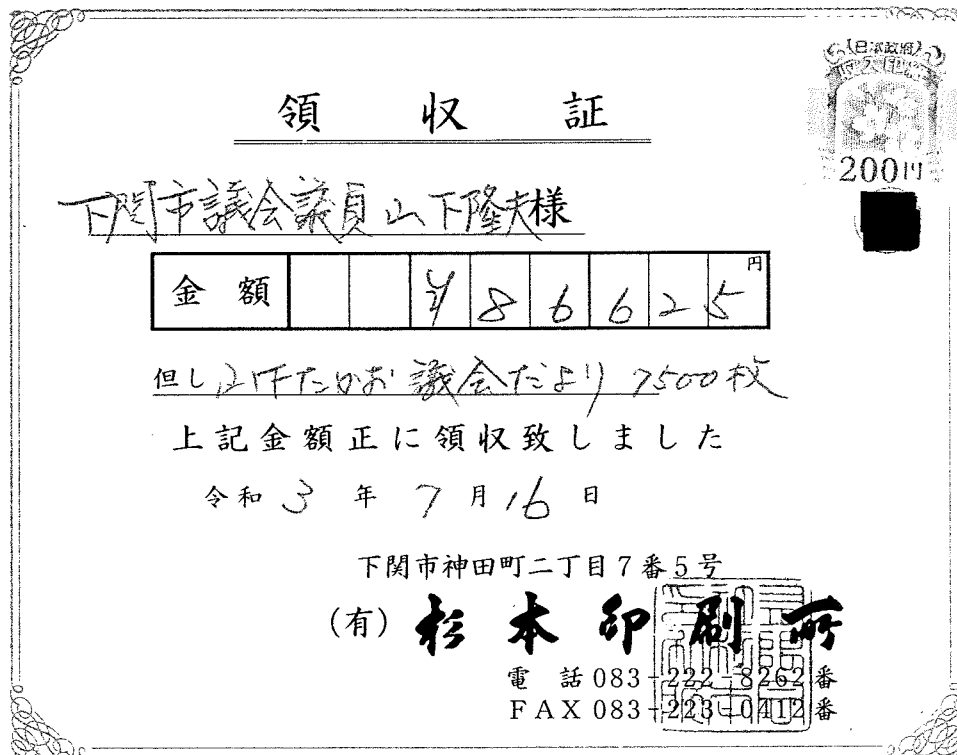 日本政府
収入印紙
200円
領収証
下関市議会議員山下隆夫様
金額 ¥86625 円
但し 山下たかお 議会だより 7500枚
上記金額正に領収致しました
令和3年7月16日
下関市神田町二丁目7番5号
(有)杉本印刷所
電話083-222-8262番
FAX083-223-0412番